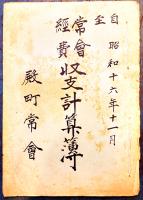 自 昭和十六年十一月
至
常會
經費
収支計算簿
殿町常會